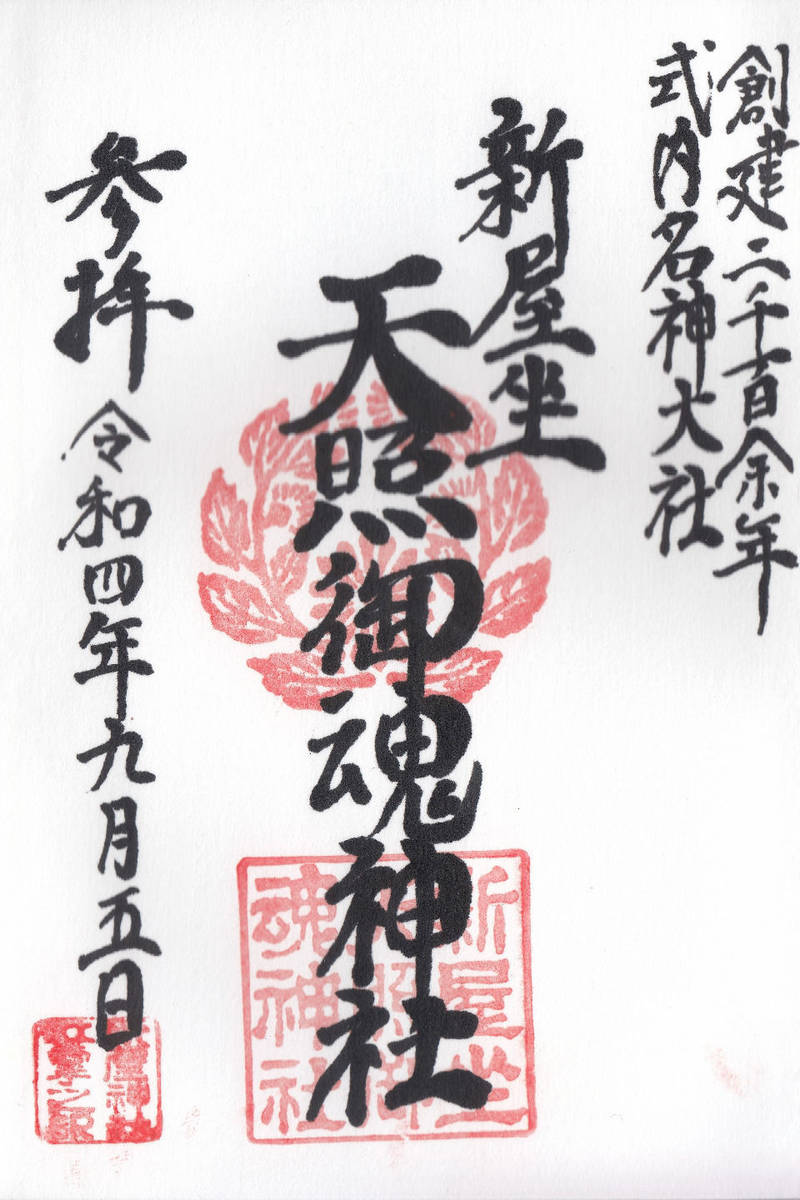 創建二千百余年
式内名神大社
新屋坐
天照御魂神社
参拝 令和四年九月五日
新屋坐
天照御
魂神社